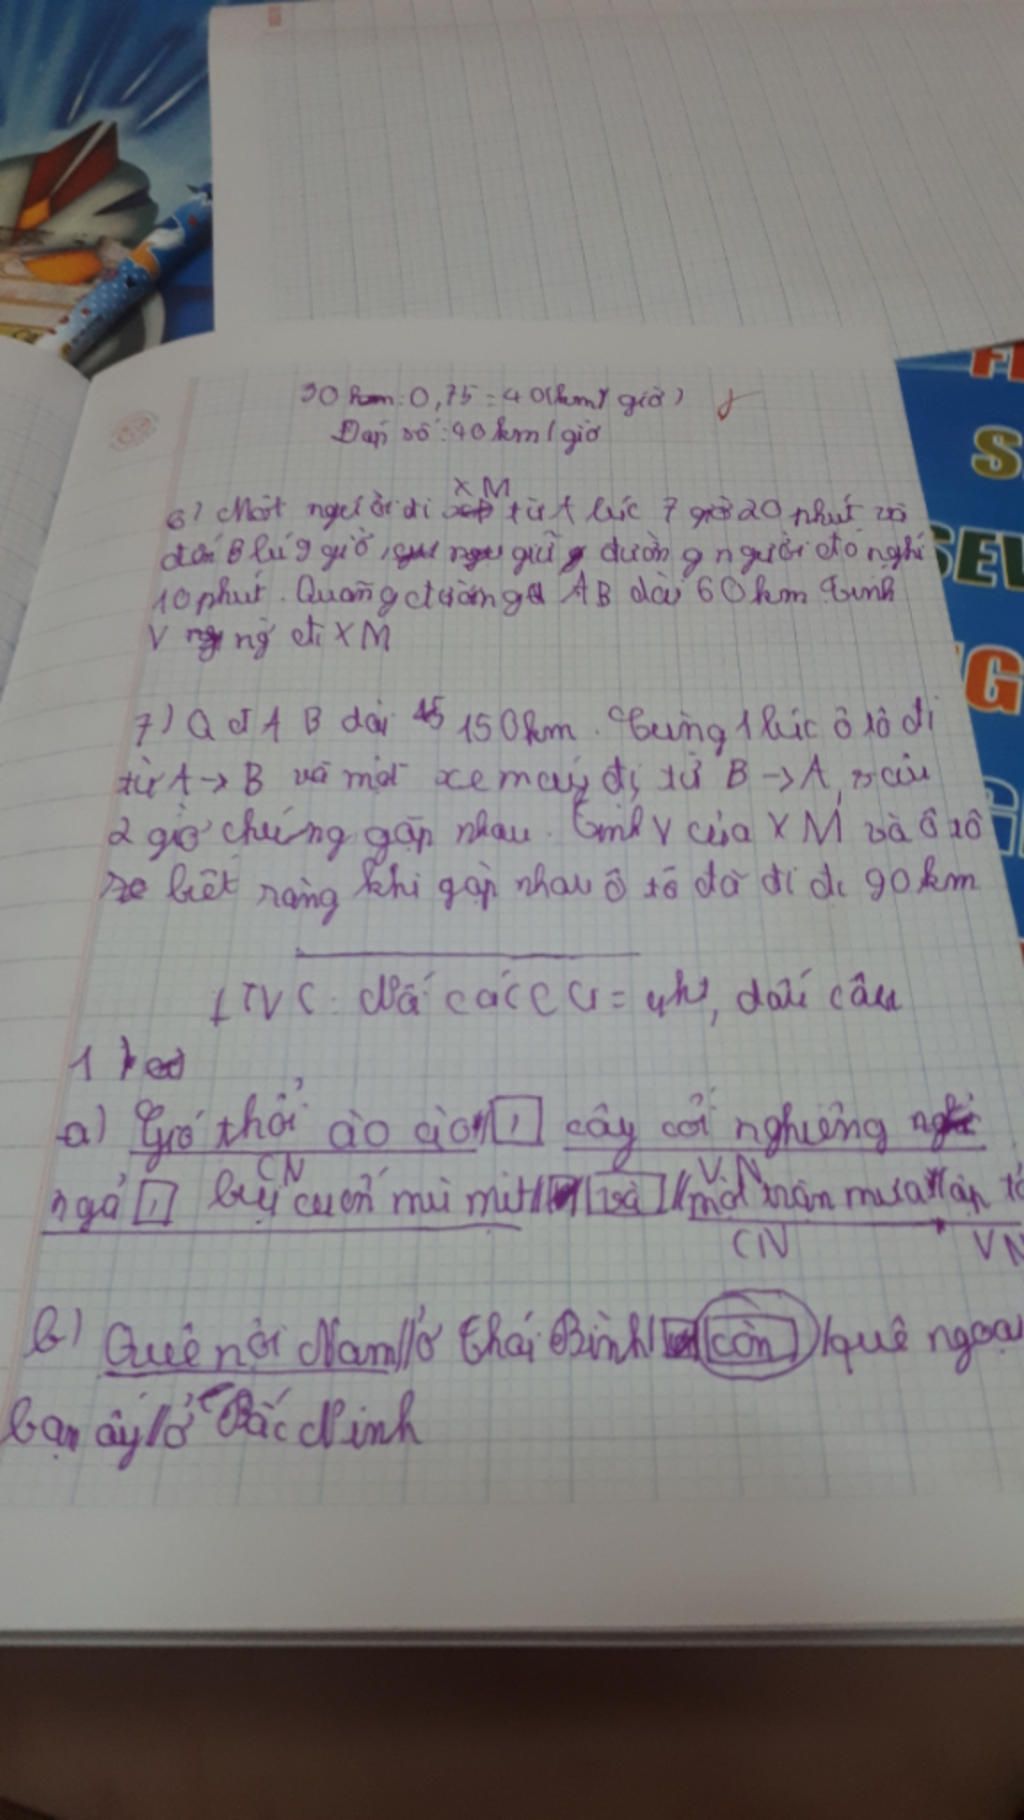 30 km : 0,75 = 40 (km/giờ)
Đáp số : 40 km/giờ
XM
6) Một người đi từ A lúc 7 giờ 20 phút và
đến B lúc 9 giờ, giữa đường người đó nghỉ
10 phút. Quãng đường AB dài 60 km Tính
V ng đi XM
7) QđAB dài 150km. Cùng 1 lúc ô tô đi
từ A → B và một xe máy đi từ B → A, sau
2 giờ chúng gặp nhau. Tính V của XM và ô tô
biết rằng khi gặp nhau ô tô đã đi đc 90km
LTVC: các = qht, dấu câu
1)
a) Gió thổi ào ào , cây cối nghiêng
CN VN
ngả , bụi cuốn mù mịt // và // một trận mưa // ập tớ
CN VN
b) Quê nội Nam // ở Thái Bình / còn / quê ngoạ
bạn ấy // ở Bắc Ninh
FI
S
SEV
G
G